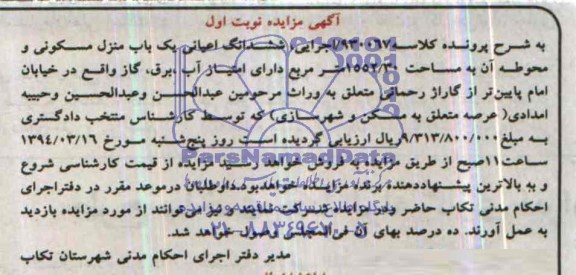 آگهی مزایده نوبت اول
به شرح پرونده کلاسه ۹۳۰۰۶۷/اجرایی، ششدانگ اعیانی یک باب منزل مسکونی و
محوطه آن به مساحت متر مربع دارای امتیاز آب ،برق، گاز واقع در خیابان
امام پایین‌تر از گاراژ رحمانی متعلق به وراث مرحومین عبدالحسن وعبدالحسین وحبیبه
امدادی( عرصه متعلق به مسکن و شهرسازی) که توسط کارشناس منتخب دادگستری
به مبلغ ۹/۳۱۳/۸۰۰/۰۰۰ریال ارزیابی گردیده است روز پنج‌شنبه مورخ ۱۳۹۴/۰۳/۱۶
ساعت۱۱صبح از طریق مزایده به فروش خواهد رسید مزایده از قیمت کارشناسی شروع
و به بالاترین پیشنهاددهنده برنده مزایده خواهدبود.داوطلبان درموعد مقرر در دفتراجرای
احکام مدنی تکاب حاضر ودر مزایده شرکت نمایند و نیز می‌توانند از مورد مزایده بازدید
به عمل آورند. ده درصد بهای آن فی‌المجلس وصول خواهد شد.
مدیر دفتر اجرای احکام مدنی شهرستان تکاب
ParsNamadData